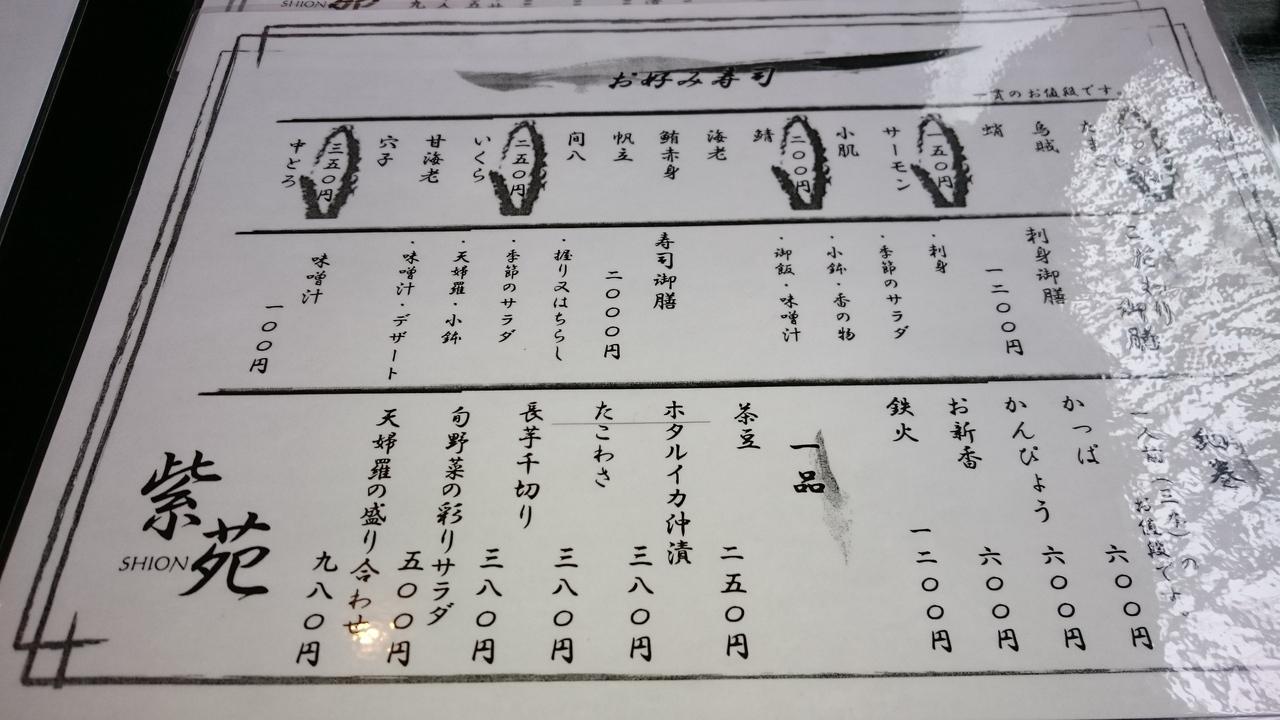 お好み寿司
一貫のお値段です。
烏賊
蛸
一五〇円
サーモン
小肌
二〇〇円
鯖
海老
鮪赤身
帆立
間八
二五〇円
いくら
甘海老
穴子
三五〇円
中とろ
御膳
刺身御膳
一二〇〇円
・刺身
・季節のサラダ
・小鉢・香の物
・御飯・味噌汁
寿司御膳
二〇〇〇円
・握り又はちらし
・季節のサラダ
・天婦羅・小鉢
・味噌汁・デザート
味噌汁
一〇〇円
巻
一人前(三
の
お値段です。
かっぱ
六〇〇円
かんぴょう
六〇〇円
お新香
六〇〇円
鉄火
一二〇〇円
一品
茶豆
二五〇円
ホタルイカ沖漬
三八〇円
たこわさ
三八〇円
長芋千切り
三八〇円
旬野菜の彩りサラダ
五〇〇円
天婦羅の盛り合わせ
九八〇円
紫苑
SHION
SHION